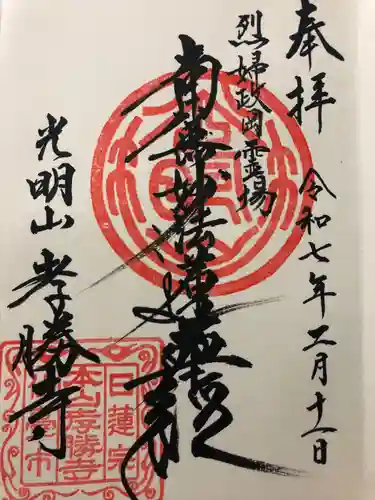 奉拝
令和七年二月十一日
烈婦政岡霊場
南無妙法蓮華経
光明山
孝勝寺
日蓮宗
本山孝勝寺